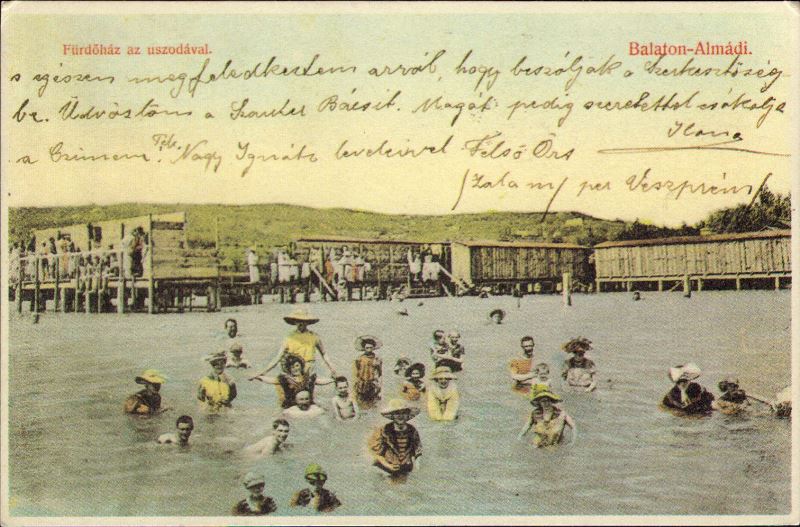 Fürdőház az uszodával.
Balaton-Almádi.
s egészen megfeledkeztem arról, hogy beszóljak a Szerkesztőség-
be. Üdvözlöm a Bácsit. Magát pedig szeretettel csókolja
Ilona
a Czimem: Nagy Ignátz levelével Felső Örs
/Zala m/ per Veszprém/